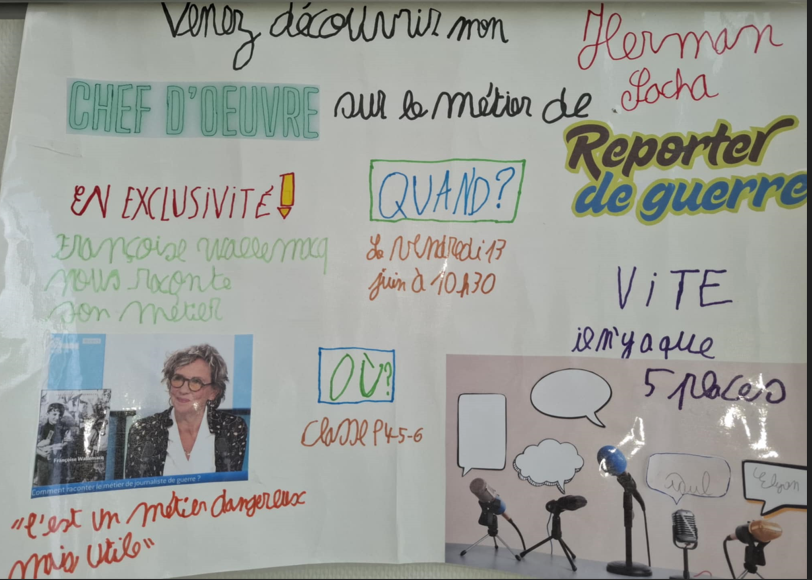 Venez découvrir mon
Herman
Sacha
CHEF D'OEUVRE sur le métier de
Reporter
de guerre
EN EXCLUSIVITÉ!
Françoise Wallemacq
nous raconte
son métier
QUAND?
Le vendredi 13
juin à 10h30
VITE
il n'y a que
5 places
OÙ?
Classe P4-5-6
Françoise
Comment raconter le métier de journaliste de guerre ?
"c'est un métier dangereux
mais utile"